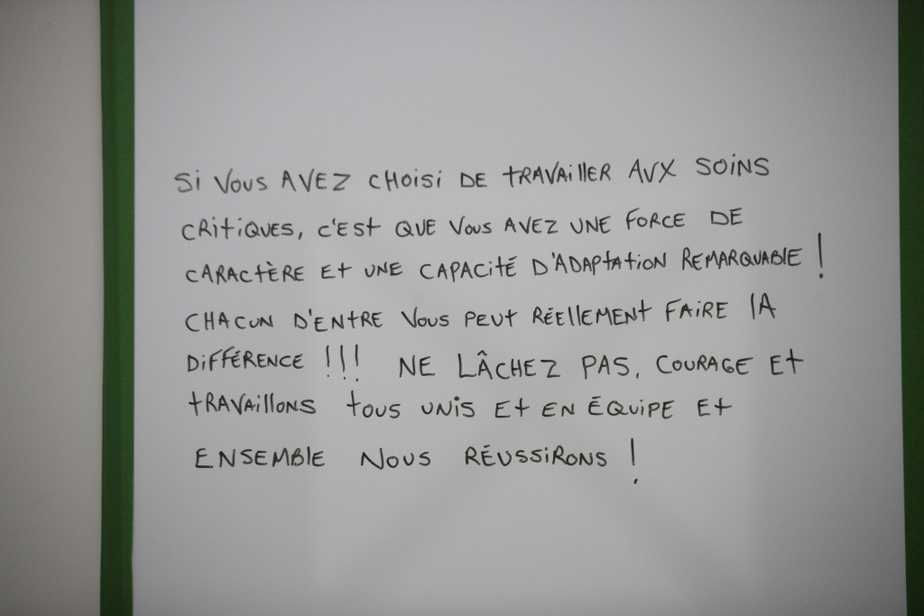 Si Vous AVEZ CHOiSi DE tRAVAillER AUX SOiNS
CRitiQUES, C'ESt QUE Vous AVEZ UNE FORCE DE
CARACtÈRE Et UNE CAPACitÉ D'ADAPtAtiON REMARQUABlE !
CHACUN D'ENtRE Vous PEUt RÉEllEMENt FAiRE lA
DiFFÉRENCE !!! NE LÂCHEZ PAS, COURAGE Et
tRAVAillONS tous UNiS Et EN ÉQUiPE Et
ENSEMBlE NOUS RÉUSSiRONS !